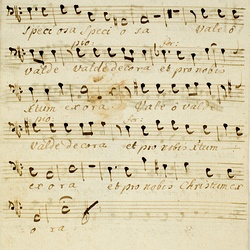 Speciosa Speci o sa Vale ô
pia: for:
valde valde decora et pro nobis
Xtum exora Vale ô valde
pia: for:
valde decora et pro nobis Xtum
exora et pro nobis Christum ex
o ra